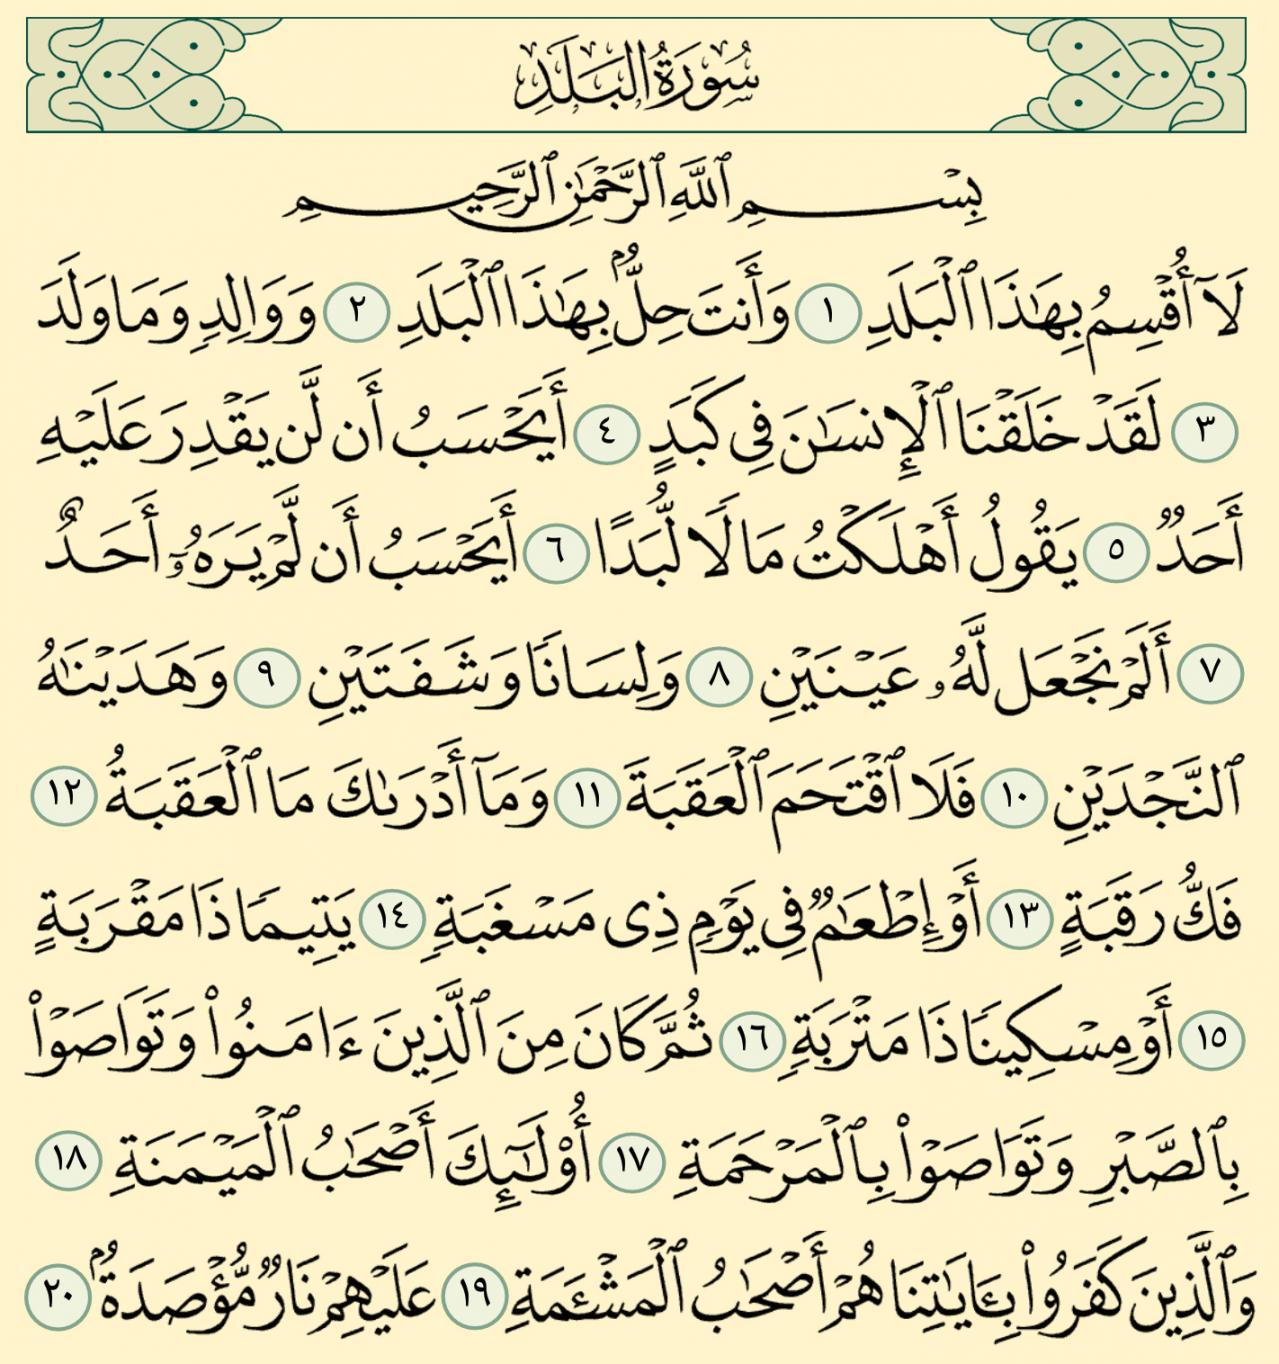 سُورَةُ الْبَلَدِ
بِسْمِ ٱللَّهِ ٱلرَّحْمَٰنِ ٱلرَّحِيمِ
لَآ أُقْسِمُ بِهَٰذَا ٱلْبَلَدِ ١ وَأَنتَ حِلٌّۢ بِهَٰذَا ٱلْبَلَدِ ٢ وَوَالِدٍ وَمَا وَلَدَ
٣ لَقَدْ خَلَقْنَا ٱلْإِنسَٰنَ فِى كَبَدٍ ٤ أَيَحْسَبُ أَن لَّن يَقْدِرَ عَلَيْهِ
أَحَدٌ ٥ يَقُولُ أَهْلَكْتُ مَالًا لُّبَدًا ٦ أَيَحْسَبُ أَن لَّمْ يَرَهُۥٓ أَحَدٌ
٧ أَلَمْ نَجْعَل لَّهُۥ عَيْنَيْنِ ٨ وَلِسَانًا وَشَفَتَيْنِ ٩ وَهَدَيْنَٰهُ
ٱلنَّجْدَيْنِ ١٠ فَلَا ٱقْتَحَمَ ٱلْعَقَبَةَ ١١ وَمَآ أَدْرَىٰكَ مَا ٱلْعَقَبَةُ ١٢
فَكُّ رَقَبَةٍ ١٣ أَوْ إِطْعَٰمٌ فِى يَوْمٍ ذِى مَسْغَبَةٍ ١٤ يَتِيمًا ذَا مَقْرَبَةٍ
١٥ أَوْ مِسْكِينًا ذَا مَتْرَبَةٍ ١٦ ثُمَّ كَانَ مِنَ ٱلَّذِينَ ءَامَنُوا۟ وَتَوَاصَوْا۟
بِٱلصَّبْرِ وَتَوَاصَوْا۟ بِٱلْمَرْحَمَةِ ١٧ أُو۟لَٰٓئِكَ أَصْحَٰبُ ٱلْمَيْمَنَةِ ١٨
وَٱلَّذِينَ كَفَرُوا۟ بِـَٔايَٰتِنَا هُمْ أَصْحَٰبُ ٱلْمَشْـَٔمَةِ ١٩ عَلَيْهِمْ نَارٌ مُّؤْصَدَةٌۢ ٢٠